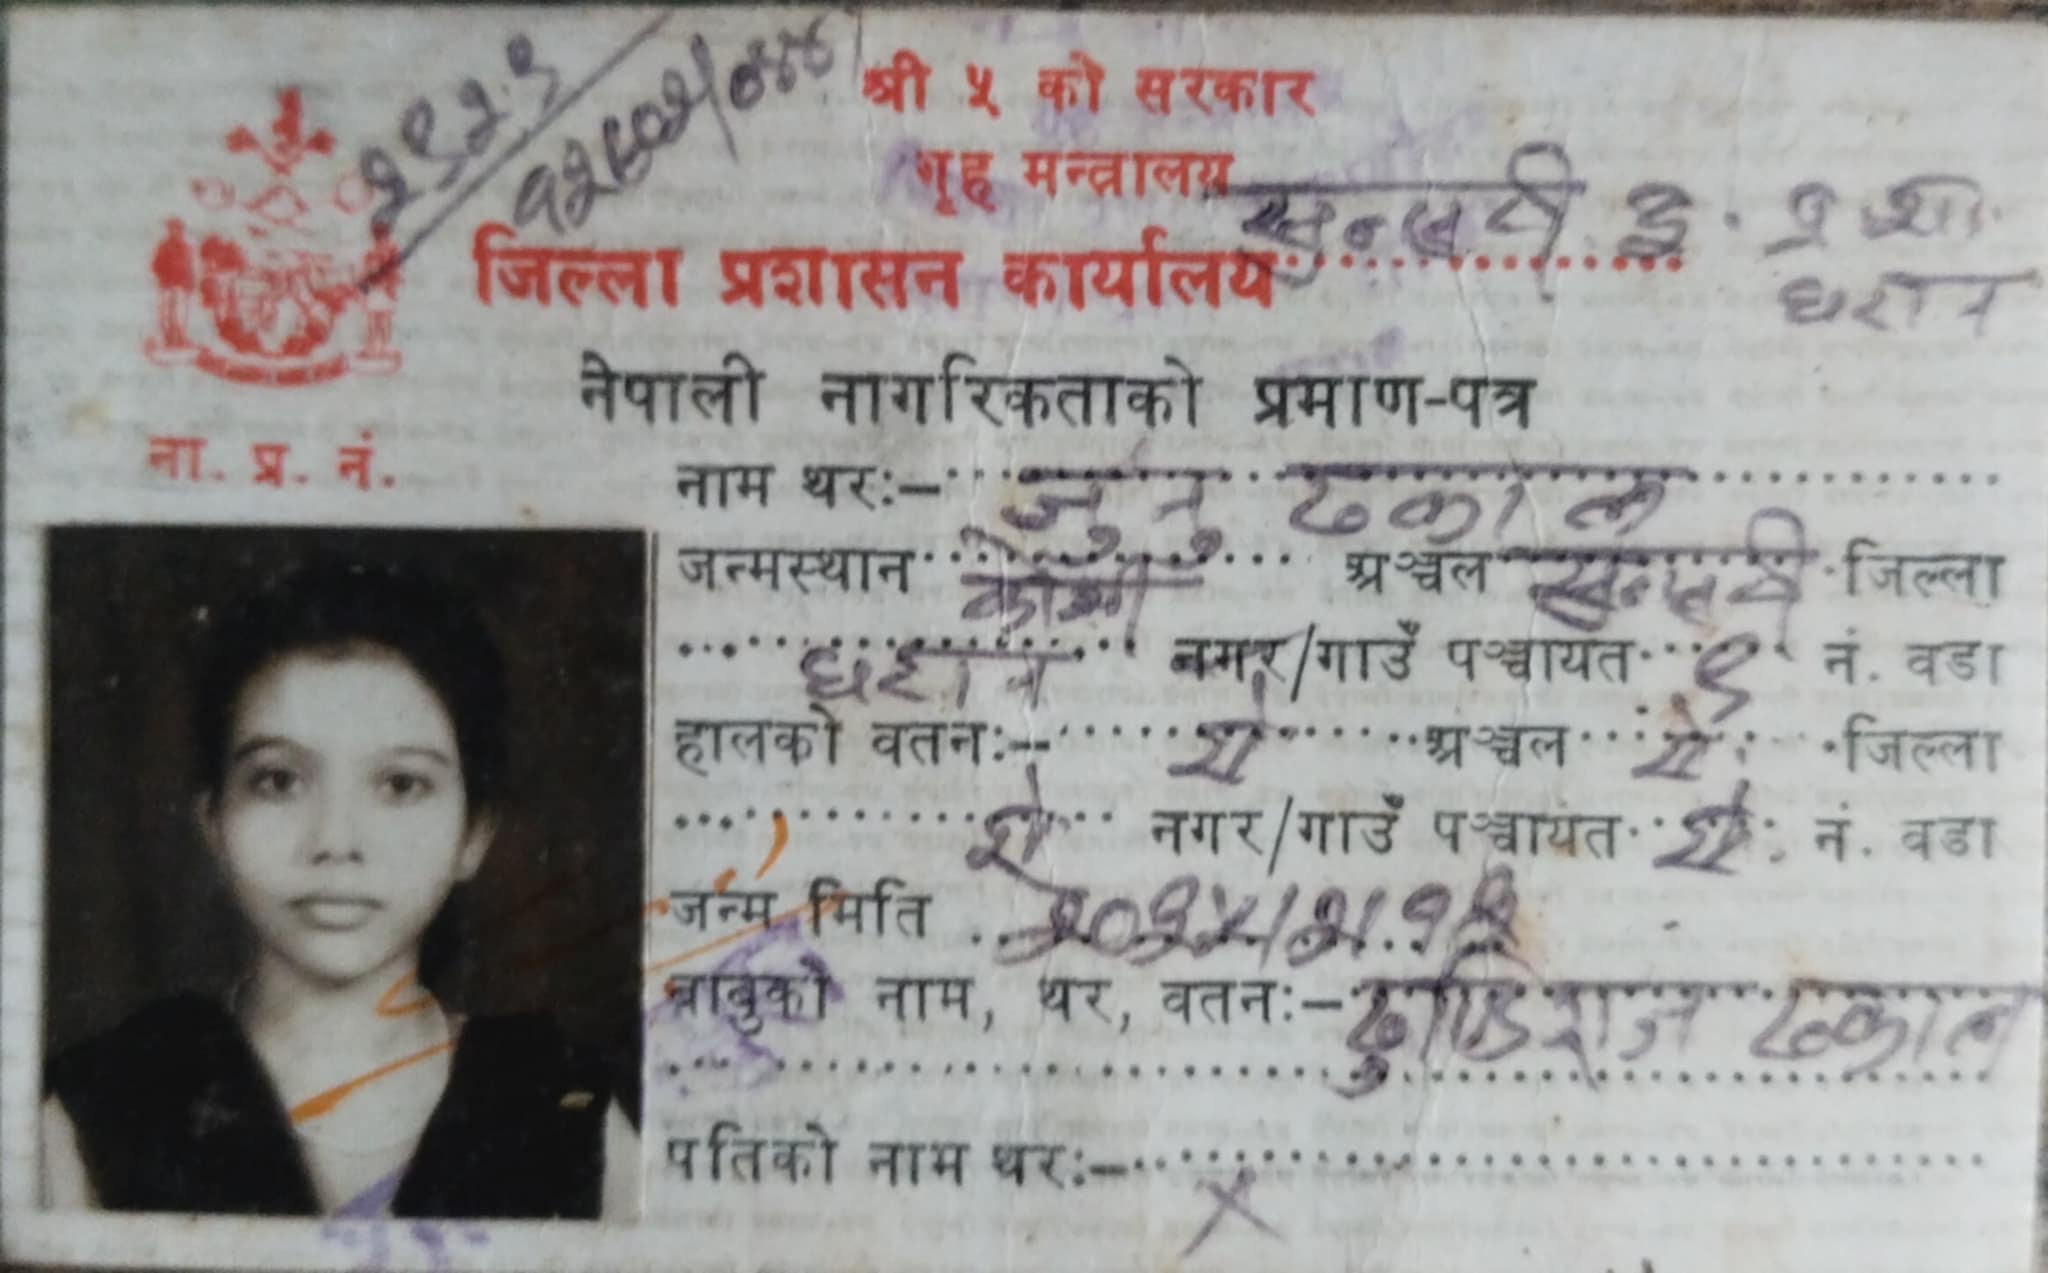 श्री ५ को सरकार
गृह मन्त्रालय
जिल्ला प्रशासन कार्यालय सुनसरी इ. प्रशा.
धरान
नेपाली नागरिकताको प्रमाण-पत्र
ना. प्र. नं.
नाम थरः- जुनु ढकाल
जन्मस्थान कोशी अञ्चल सुनसरी जिल्ला
धरान नगर/गाउँ पञ्चायत ९ नं. वडा
हालको वतनः- ऐ अञ्चल ऐ जिल्ला
ऐ नगर/गाउँ पञ्चायत ऐ नं. वडा
जन्म मिति
बाबुको नाम, थर, वतनः- ढुण्डिराज ढकाल
पतिको नाम थरः- X